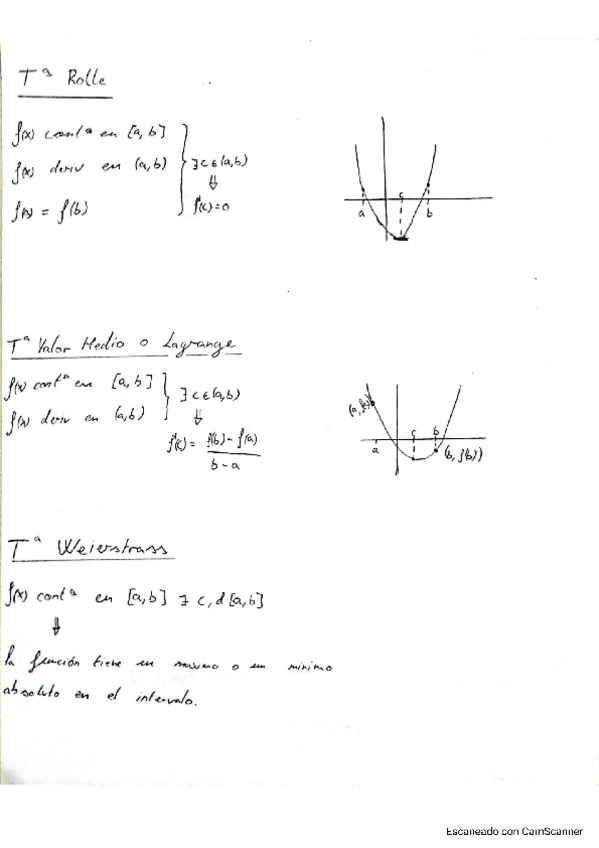 Tª Rolle
f(x) contª en [a,b]
f(x) deriv en (a,b)
∃ c ∈ (a,b)
⇓
f(a) = f(b)
f'(c)=0
a c b
Tª Valor Medio o Lagrange
f(x) contª en [a,b]
∃ c ∈ (a,b)
f(x) deriv en (a,b)
⇓
f'(c) = f(b) - f(a)
b - a
(a, f(a))
a c b
(b, f(b))
Tª Weierstrass
f(x) contª en [a,b] ∃ c, d [a,b]
⇓
la función tiene un maximo o un minimo
absoluto en el intervalo.
Escaneado con CamScanner